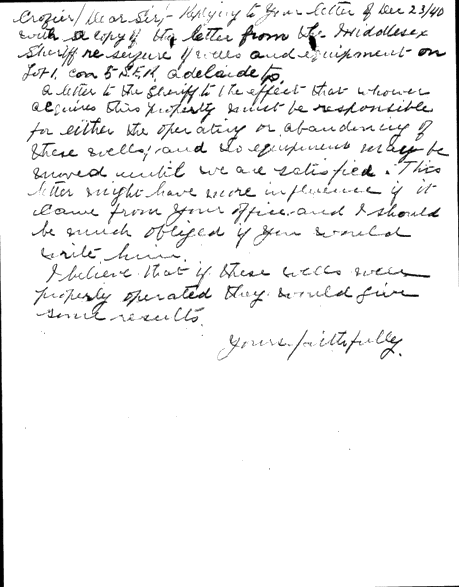 Crozier / Dear Sir;- Replying to your letter of Dec 23/40
with a copy of the letter from the Middlesex
Sheriff re seizure of wells and equipment on
Lot 1, con 5 S.E.R, Adelaide tp.
A letter to the Sheriff to the effect that whoever
acquires this property must be responsible
for either the operating or abandoning of
these wells; and no equipment may be
moved until we are satisfied. This
letter might have more influence if it
came from your office and I should
be much obliged if you would
write him.
I believe that if these wells were
properly operated they would give
some results.
Yours faithfully.